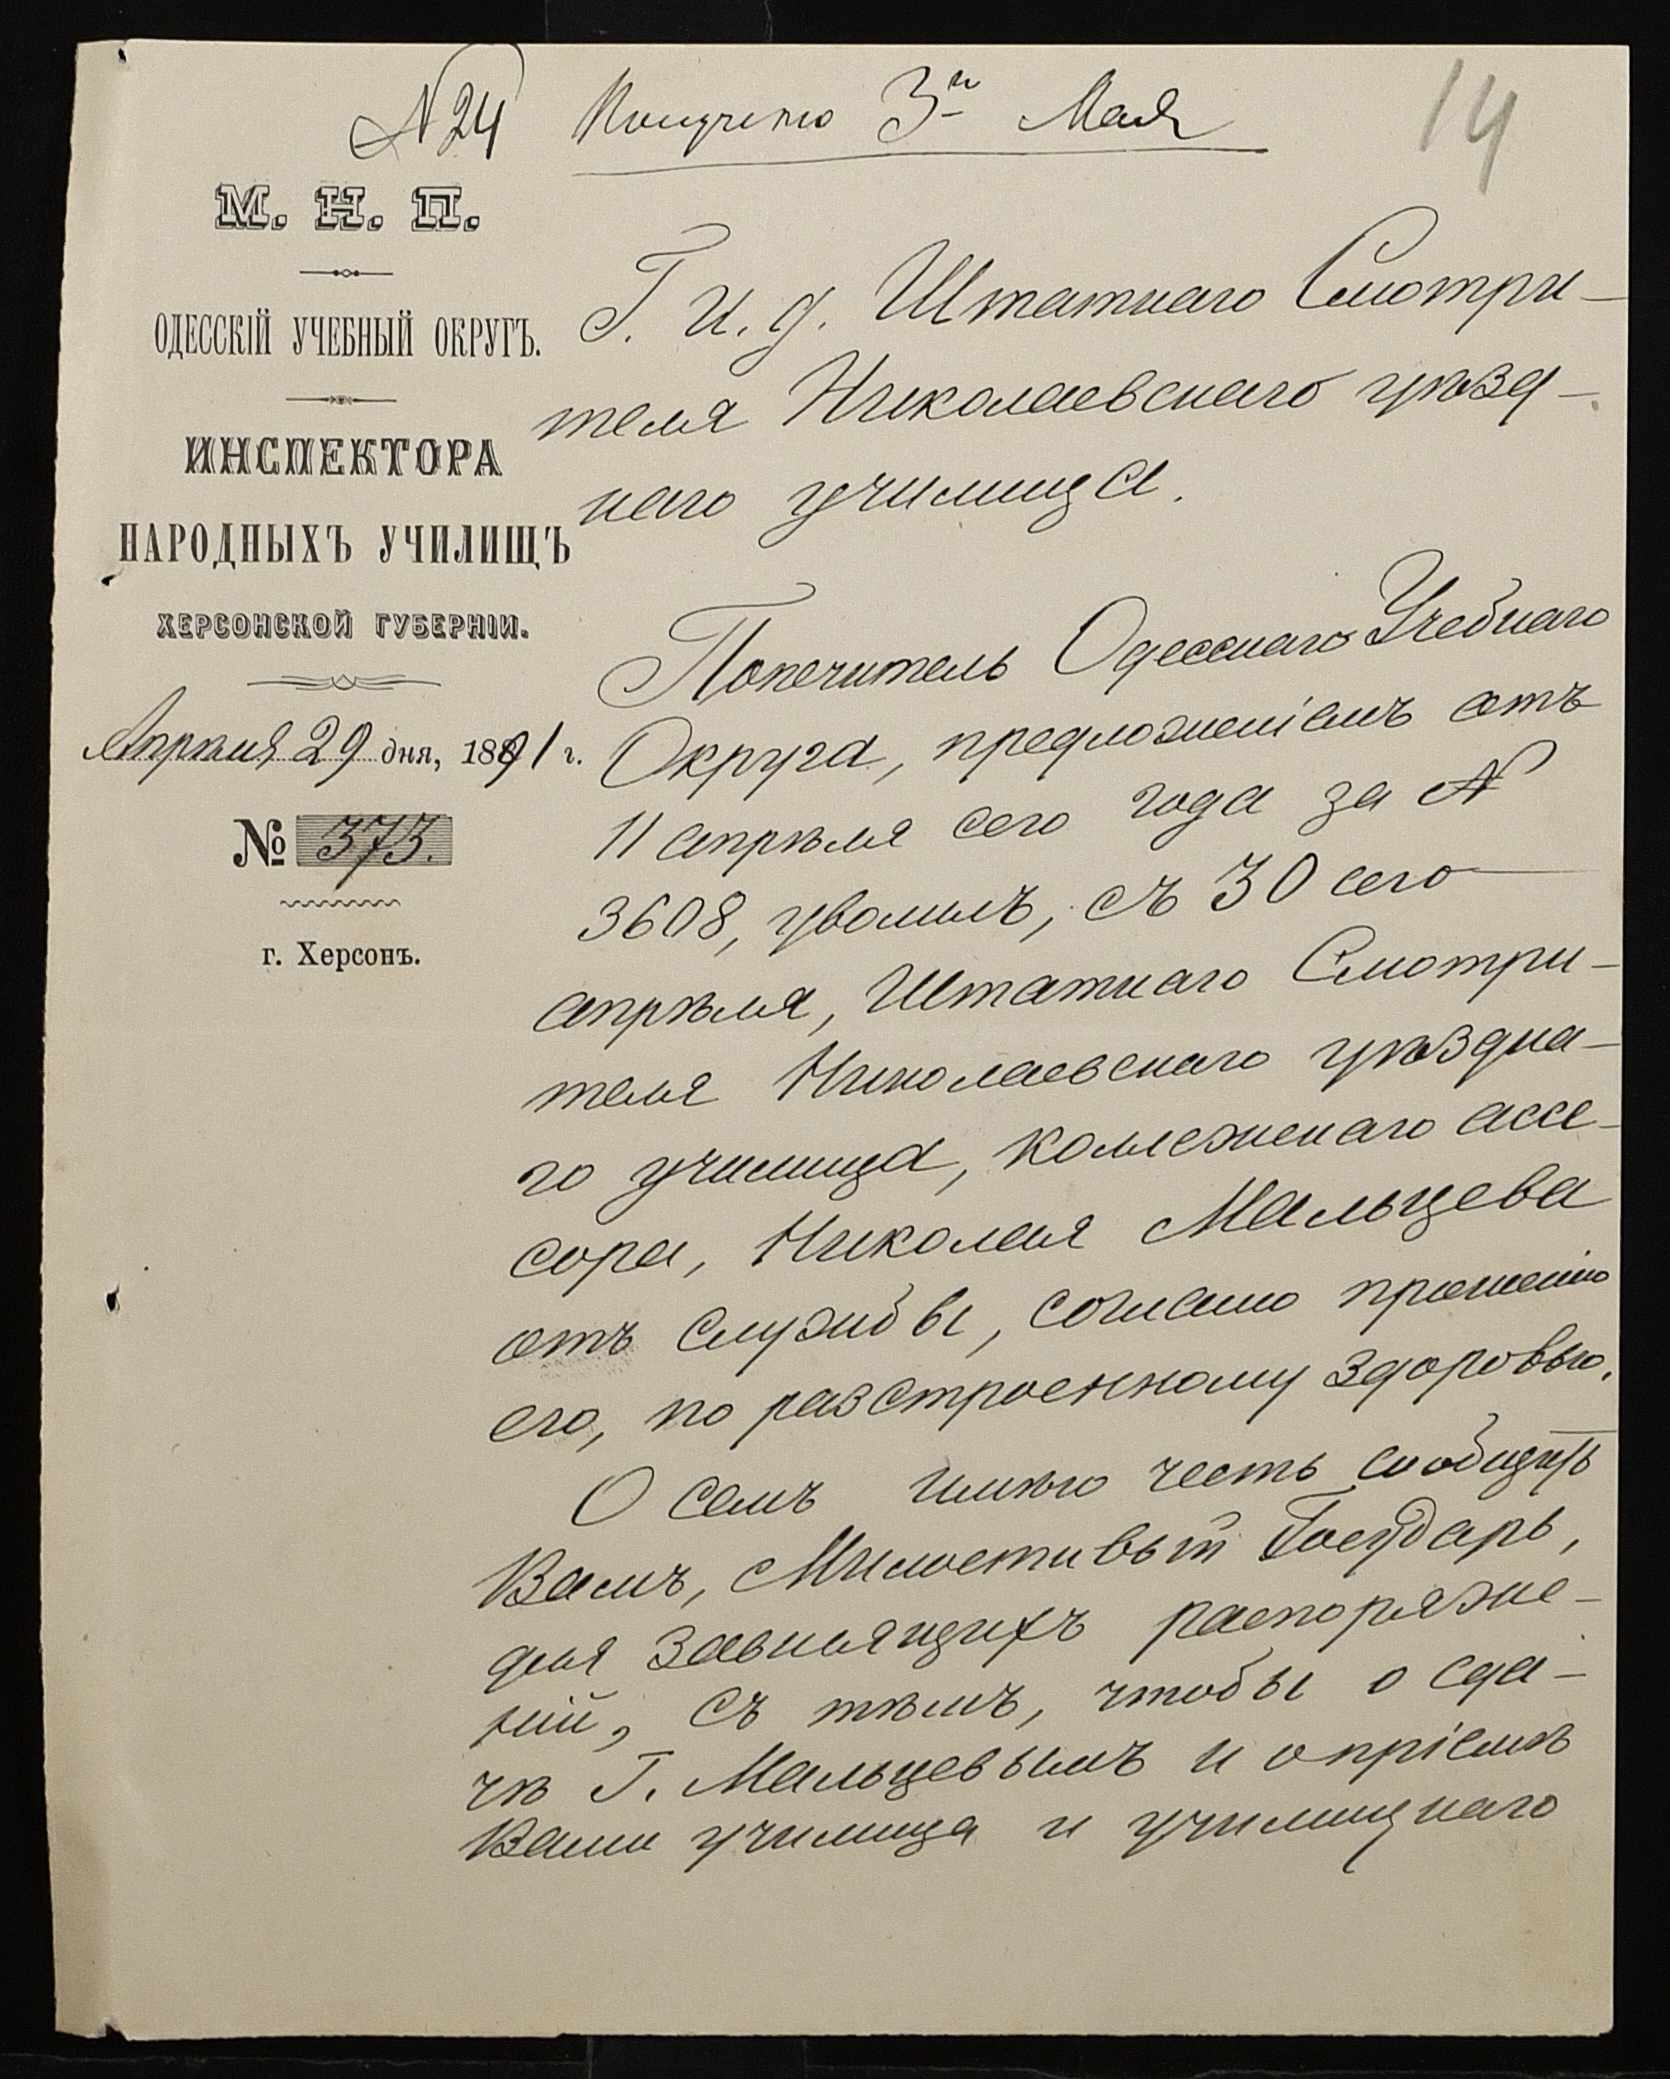 № 24 Получено 3го Мая
14
М. Н. П.
ОДЕССКІЙ УЧЕБНЫЙ ОКРУГЪ.
ИНСПЕКТОРА
НАРОДНЫХЪ УЧИЛИЩЪ
ХЕРСОНСКОЙ ГУБЕРНІИ.
Апрѣля 29 дня, 1891 г.
№ 373.
г. Херсонъ.
Г. И. д. Штатнаго Смотри-
теля Николаевскаго уѣзд-
наго училища.
Попечитель Одесскаго Учебнаго
Округа, предложеніемъ отъ
11 апрѣля сего года за №
3608, уволилъ, съ 30 сего
апрѣля, Штатнаго Смотри-
теля Николаевскаго уѣздна-
го училища, коллежскаго ассе-
сора, Николая Мальцева
отъ службы, согласно прошенію
его, по разстроенному здоровью.
О семъ имѣю честь сообщить
Вамъ, Милостивый Государь,
для зависящихъ распоряже-
ній, съ тѣмъ, чтобы о сда-
чѣ Г. Мальцевымъ и о пріемѣ
Вами училища и училищнаго